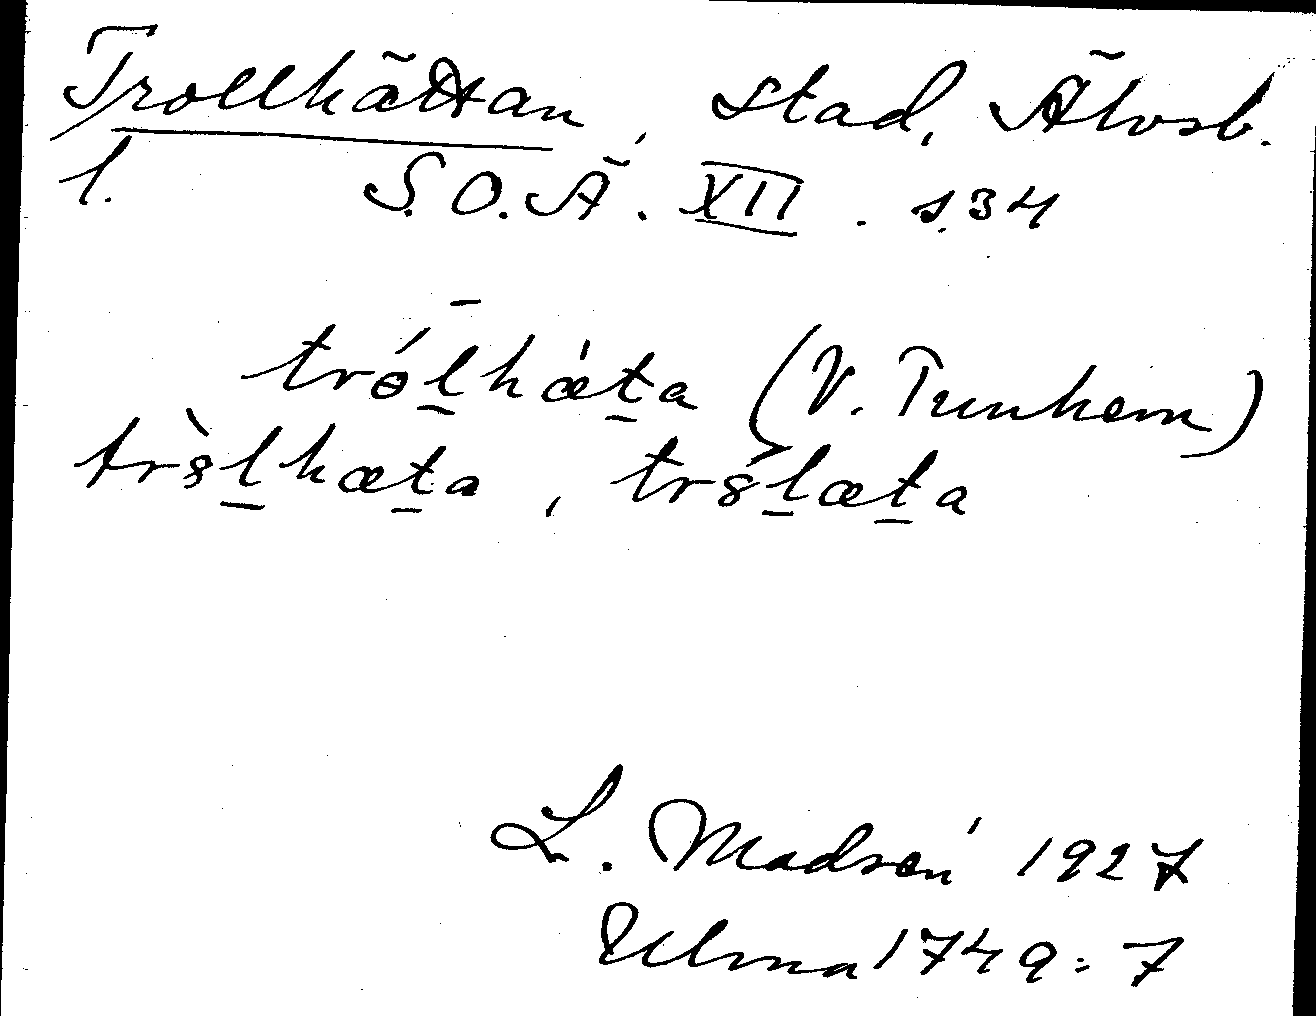 Trollhättan, stad, Älvsb.
l. S.O.Ä. XII. s. 34
tról̲hæ̀t̲a (V. Tunhem)
trὸl̲hæt̲a, tról̲æt̲a
L. Madsén 1927
Ulma 1749:7